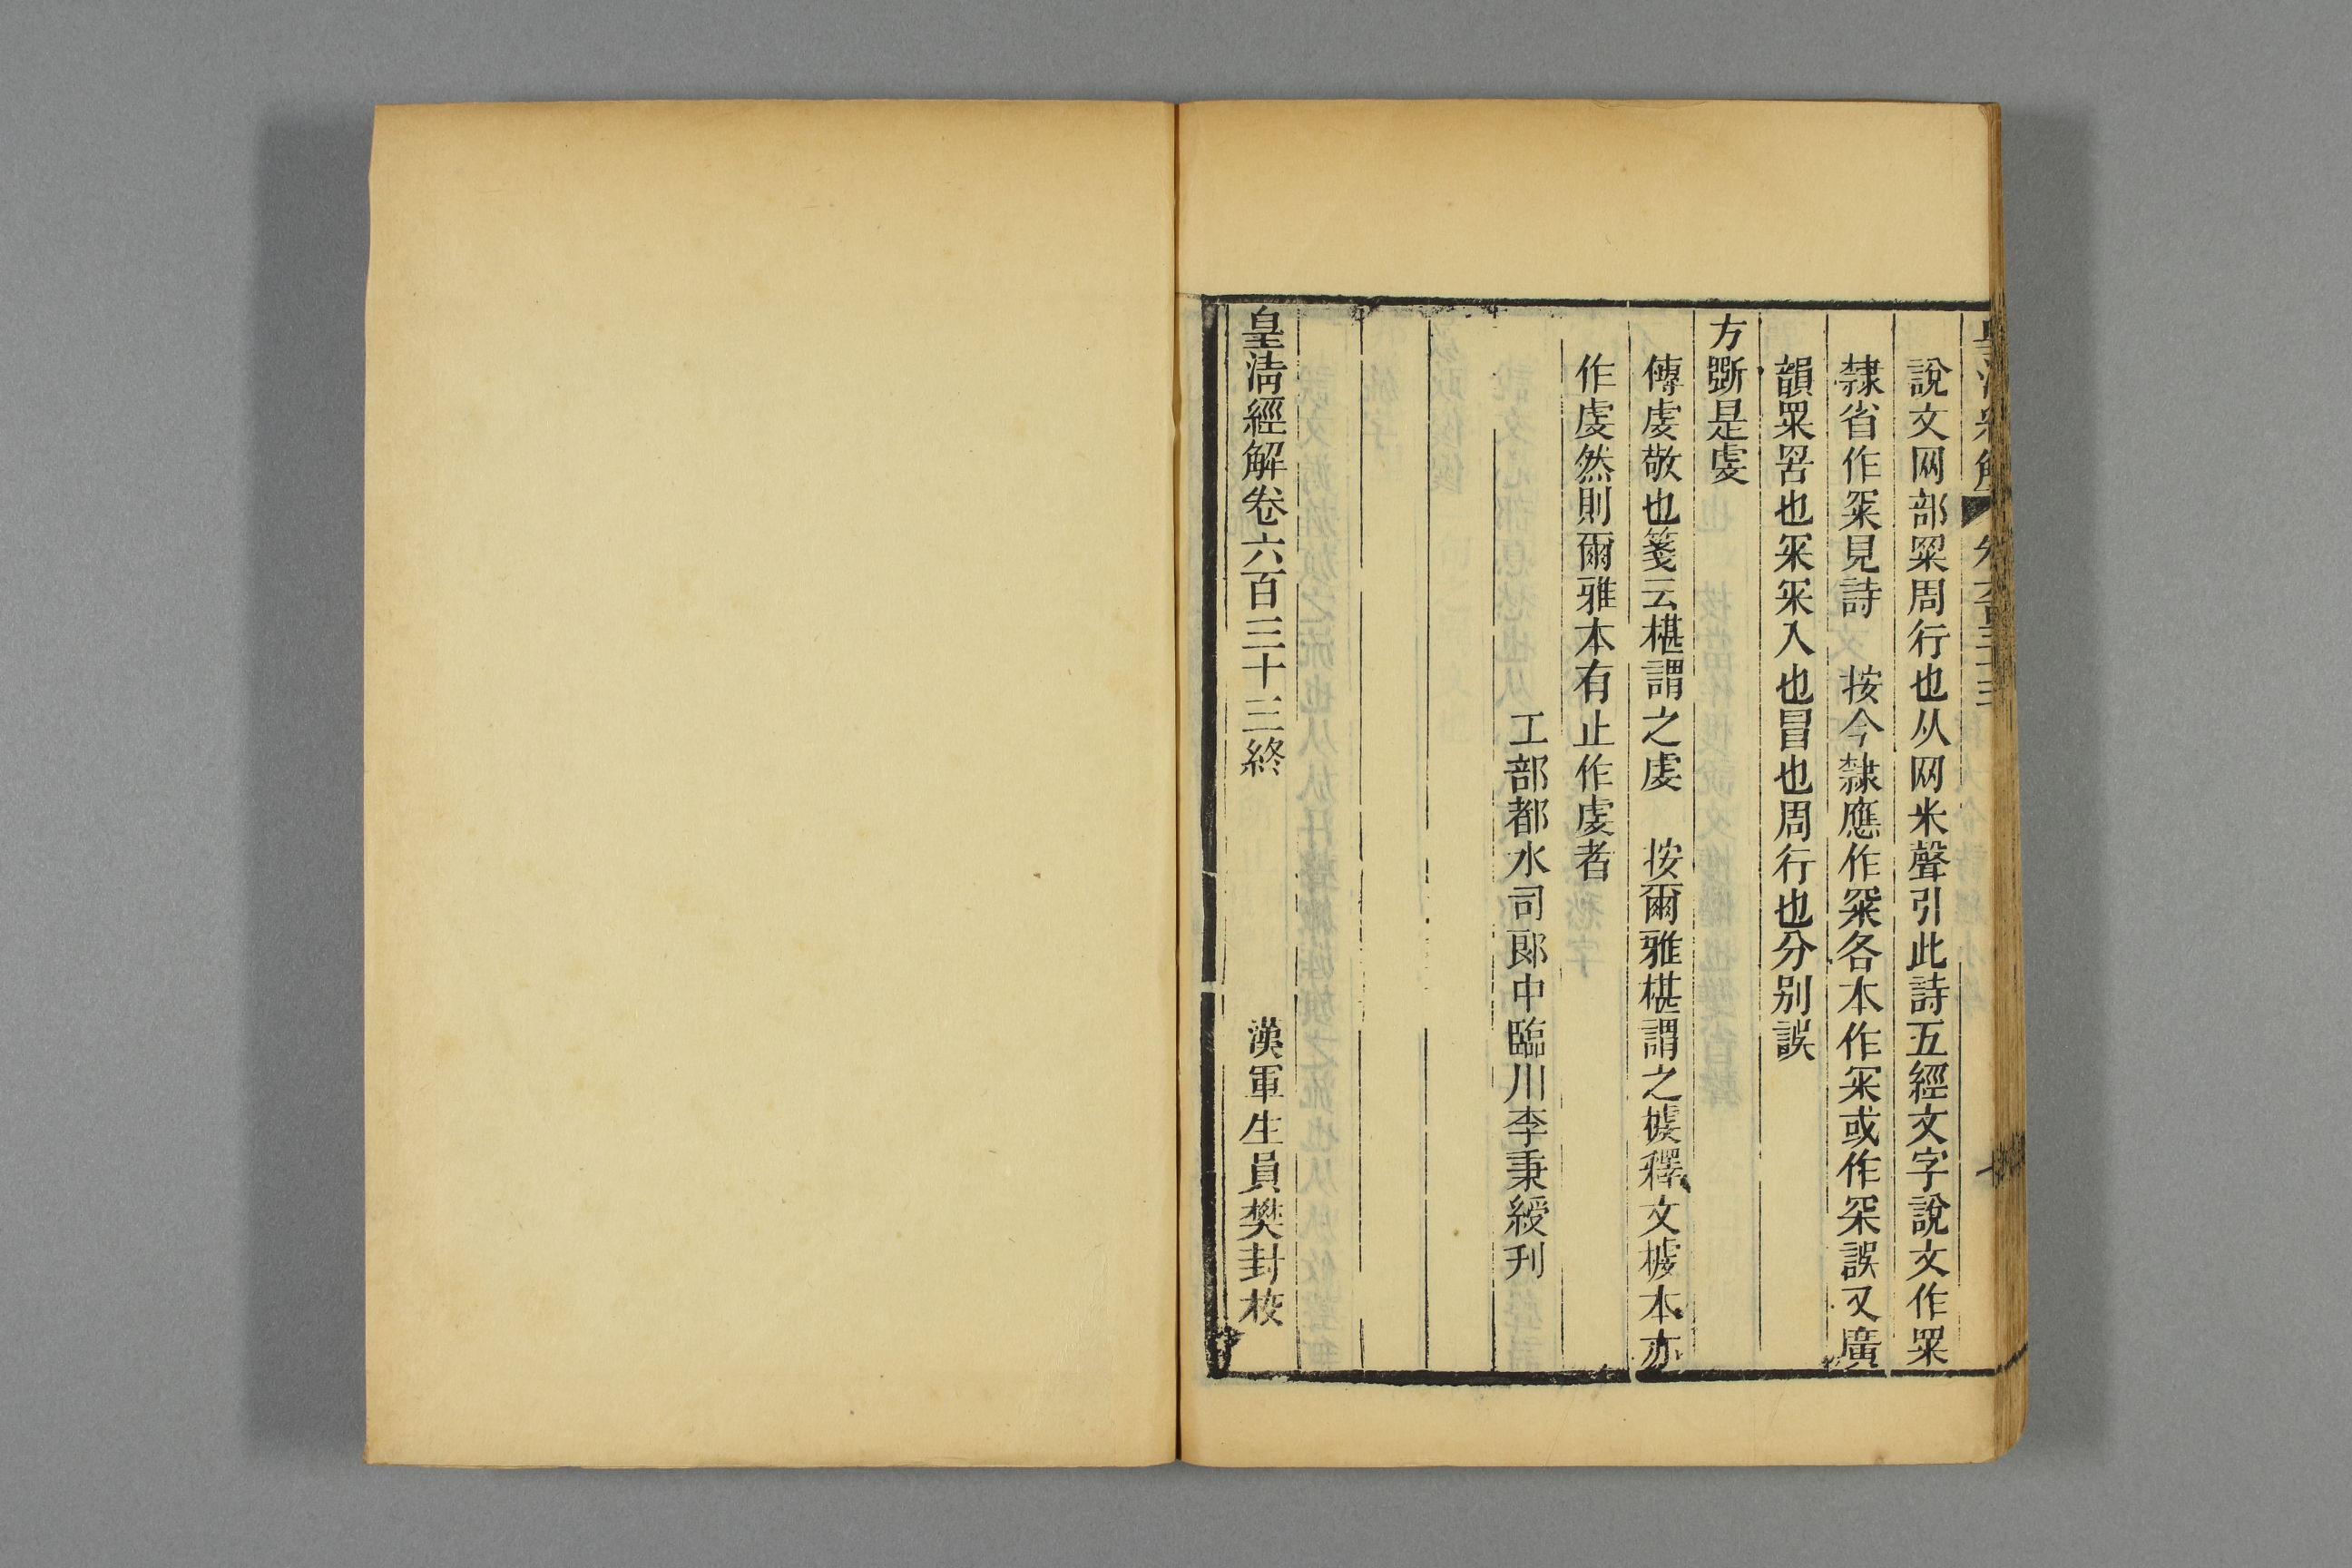 說文网部罙周行也从网米聲引此詩五經文字說文作罙
隸省作罙見詩　按今隸應作罙各本作冞或作罙誤又廣
韻罙罟也冞冞入也冒也周行也分別誤
方斲是虔
傳虔敬也箋云椹謂之虔　按爾雅椹謂之榩釋文榩本亦
作虔然則爾雅本有止作虔者
工部都水司郎中臨川李秉綬刋
皇清經解卷六百三十三終
漢軍生員樊封校